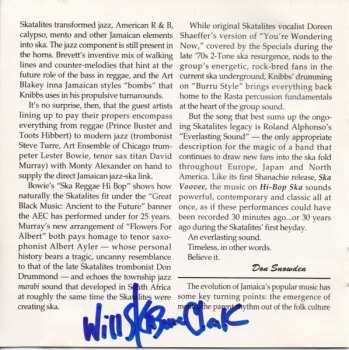 Skatalites transformed jazz, American R & B,
calypso, mento and other Jamaican elements
into ska. The jazz component is still present in
the horns. Brevett's inventive mix of walking
lines and counter-melodies that hint at the
future role of the bass in reggae, and the Art
Blakey inna Jamaican styles "bombs" that
Knibbs uses in his propulsive turnarounds.
It's no surprise, then, that the guest artists
lining up to pay their propers encompass
everything from reggae (Prince Buster and
Toots Hibbert) to modern jazz (trombonist
Steve Turre, Art Ensemble of Chicago trum-
peter Lester Bowie, tenor sax titan David
Murray) with Monty Alexander on hand to
supply the direct Jamaican jazz-ska link.
Bowie's "Ska Reggae Hi Bop" shows how
naturally the Skatalites fit under the "Great
Black Music: Ancient to the Future" banner
the AEC has performed under for 25 years.
Murray's new arrangement of "Flowers For
Albert" both pays homage to tenor saxo-
phonist Albert Ayler — whose personal
history bears a tragic, uncanny resemblance
to that of the late Skatalites trombonist Don
Drummond — and echoes the township jazz
marabi sound that developed in South Africa
at roughly the same time the Skatalites were
creating ska.
While original Skatalites vocalist Doreen
Shaeffer's version of "You're Wondering
Now," covered by the Specials during the
late '70s 2-Tone ska resurgence, nods to the
group's energetic, rock-bred fans in the
current ska underground, Knibbs' drumming
on "Burru Style" brings everything back
home to the Rasta percussion fundamentals
at the heart of the group sound.
But the song that best sums up the ongo-
ing Skatalites legacy is Roland Alphonso's
"Everlasting Sound" — the only appropriate
description for the magic of a band that
continues to draw new fans into the ska fold
throughout Europe, Japan and North
America. Like its first Shanachie release, Ska
Voovee, the music on Hi-Bop Ska sounds
powerful, contemporary and classic all at
once, as if these performances could have
been recorded 30 minutes ago...or 30 years
ago during the Skatalites' first heyday.
An everlasting sound.
Timeless, in other words.
Believe it.
Don Snowden
The evolution of Jamaica's popular music has
some key turning points: the emergence of
mento, the parent rhythm out of the folk culture
Will Clark